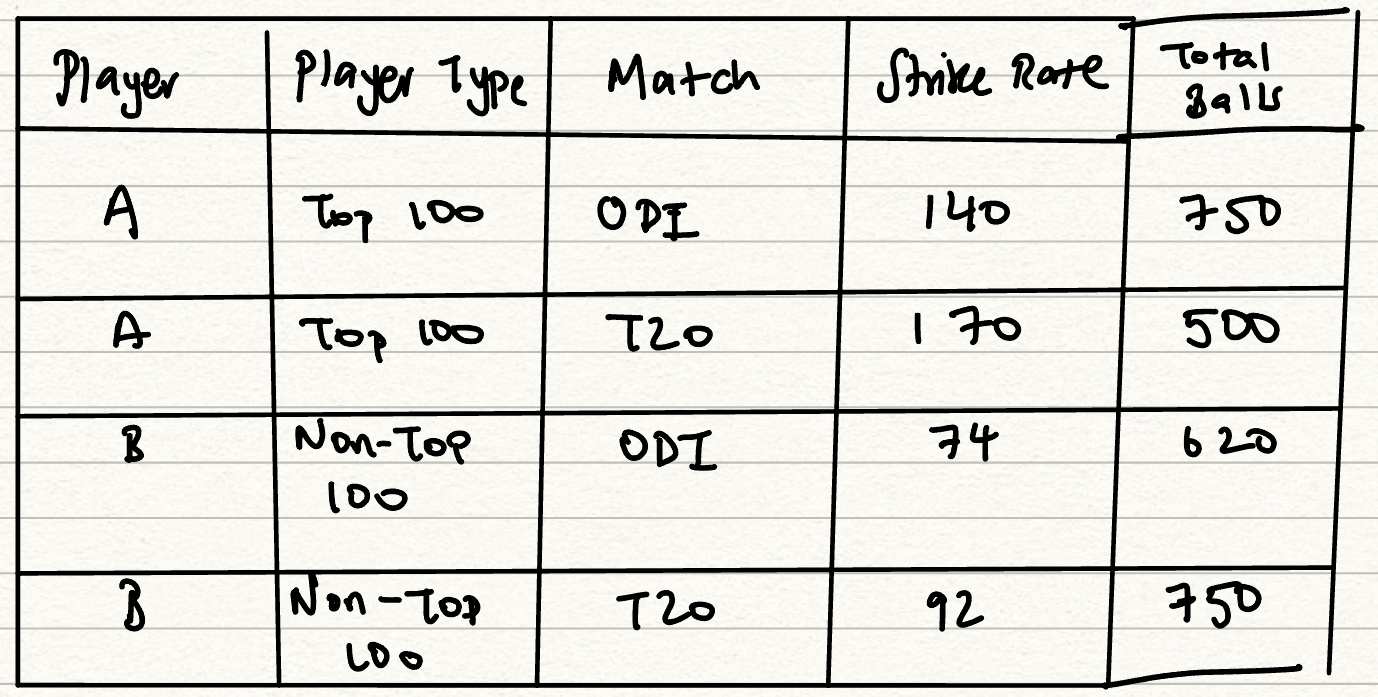 Player Player Type Match Strike Rate Total Balls
A Top 100 ODI 140 750
A Top 100 T20 170 500
B Non-Top 100 ODI 74 620
B Non-Top 100 T20 92 750